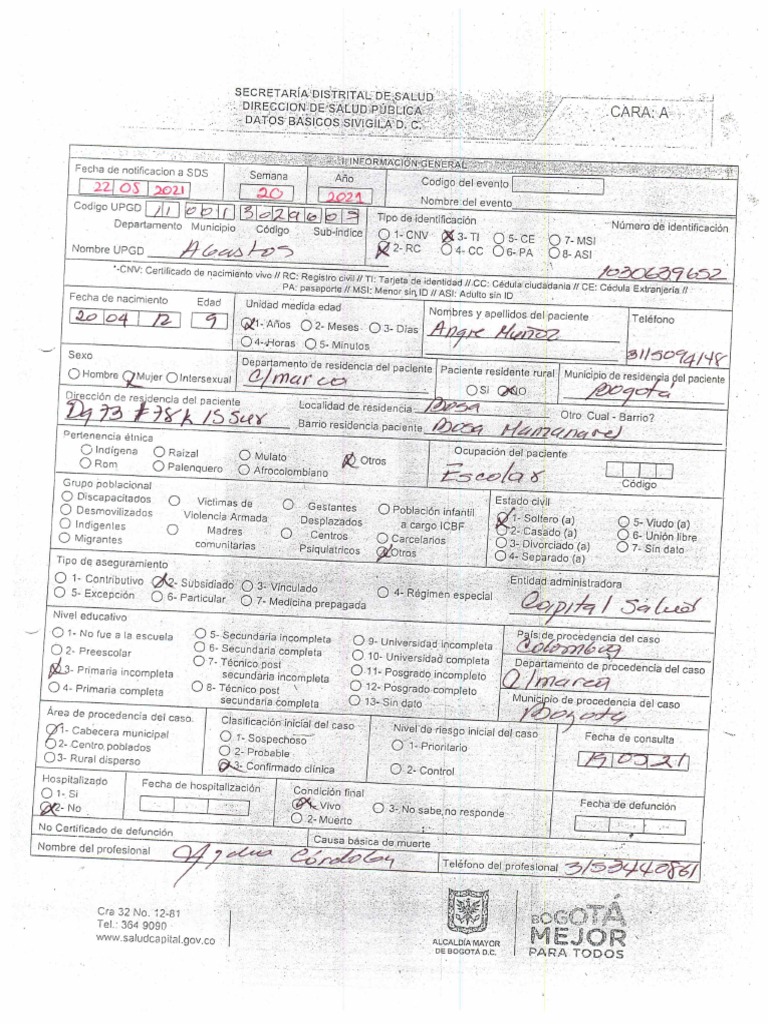 SECRETARÍA DISTRITAL DE SALUD
DIRECCION DE SALUD PÚBLICA
DATOS BÁSICOS SIVIGILA D. C.
CARA: A
I INFORMACIÓN GENERAL
Fecha de notificación a SDS Semana Año Codigo del evento
22 05 2021 20 2021 Nombre del evento
Codigo UPGD 11 001 3029609 Tipo de identificación Número de identificación
Departamento Municipio Código Sub-indice
1- CNV 3- TI 5- CE 7- MSI
2- RC 4- CC 6- PA 8- ASI
Nombre UPGD 1030639652
*-CNV: Certificado de nacimiento vivo // RC: Registro civil // TI: Tarjeta de identidad // CC: Cédula ciudadania // CE: Cédula Extranjeria //
PA: pasaporte // MSI: Menor sin ID // ASI: Adulto sin ID
Fecha de nacimiento Edad Unidad medida edad Nombres y apellidos del paciente Teléfono
20 04 12 9 1- Años 2- Meses 3- Días Muñoz
4- Horas 5- Minutos 3115094148
Sexo Departamento de residencia del paciente Paciente residente rural Municipio de residencia del paciente
Hombre Mujer Intersexual C/marca Si NO Bogotá
Dirección de residencia del paciente Localidad de residencia Bosa Otro Cual - Barrio?
Dg 73 # 78k 15 Sur Barrio residencia paciente Bosa
Pertenencia étnica Ocupación del paciente
Indígena Raizal Mulato Otros Escolar
Rom Palenquero Afrocolombiano Código
Grupo poblacional Estado civil
Discapacitados Victimas de Violencia Armada Gestantes Población infantil a cargo ICBF 1- Soltero (a) 5- Viudo (a)
Desmovilizados Desplazados 2- Casado (a) 6- Unión libre
Indigentes Madres comunitarias Centros Psiquiatricos Carcelarios 3- Divorciado (a) 7- Sin dato
Migrantes Otros 4- Separado (a)
Tipo de aseguramiento Entidad administradora
1- Contributivo 2- Subsidiado 3- Vinculado 4- Régimen especial
5- Excepción 6- Particular 7- Medicina prepagada Capital Salud
Nivel educativo País de procedencia del caso
1- No fue a la escuela 5- Secundaria incompleta 9- Universidad incompleta Colombia
2- Preescolar 6- Secundaria completa 10- Universidad completa Departamento de procedencia del caso
3- Primaria incompleta 7- Técnico post secundaria incompleta 11- Posgrado incompleto C/marca
4- Primaria completa 8- Técnico post secundaria completa 12- Posgrado completo Municipio de procedencia del caso
13- Sin dato Bogotá
Área de procedencia del caso. Clasificación inicial del caso Nivel de riesgo inicial del caso Fecha de consulta
1- Cabecera municipal 1- Sospechoso 1- Prioritario
2- Centro poblados 2- Probable 2- Control
3- Rural disperso 3- Confirmado clínica
Hospitalizado Fecha de hospitalización Condición final Fecha de defunción
1- Si 1- Vivo 3- No sabe, no responde
2- No 2- Muerto
No Certificado de defunción Causa básica de muerte
Nombre del profesional Córdoba Teléfono del profesional 3153440861
Cra 32 No. 12-81
Tel.: 364 9090
www.saludcapital.gov.co
ALCALDÍA MAYOR
DE BOGOTÁ D.C.
BOGOTÁ
MEJOR
PARA TODOS